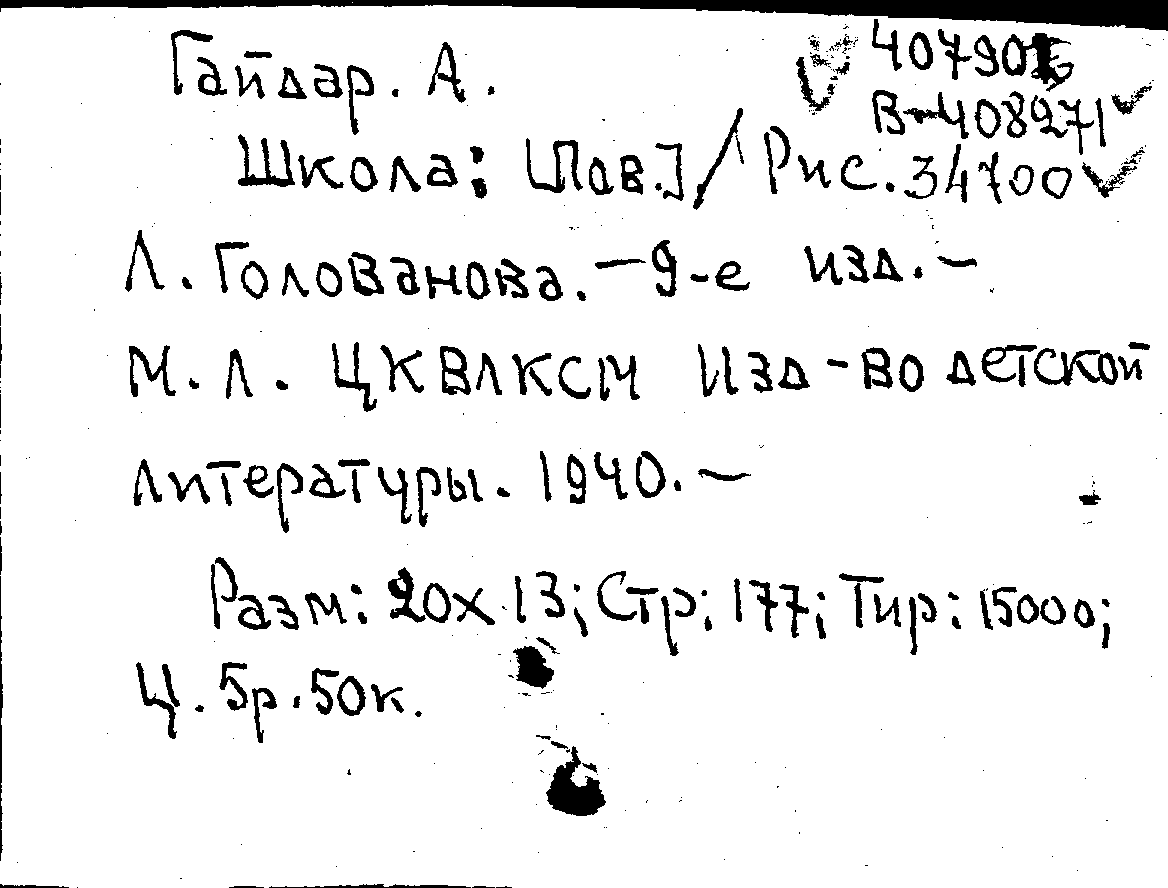 Гайдар. А.
В-408271
Школа: [Пов.] / Рис. 34700
Л. Голованова. – 9-е изд. –
М. Л. ЦКВЛКСМ Изд-во детской
литературы. 1940. –
Разм: 20х13; Стр: 177; Тир: 15000;
Ц. 5р. 50к.